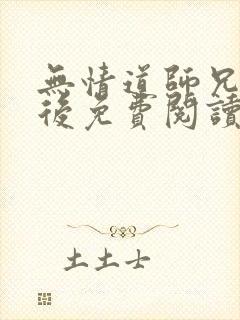 無情道師兄
後免費閱讀
土土士